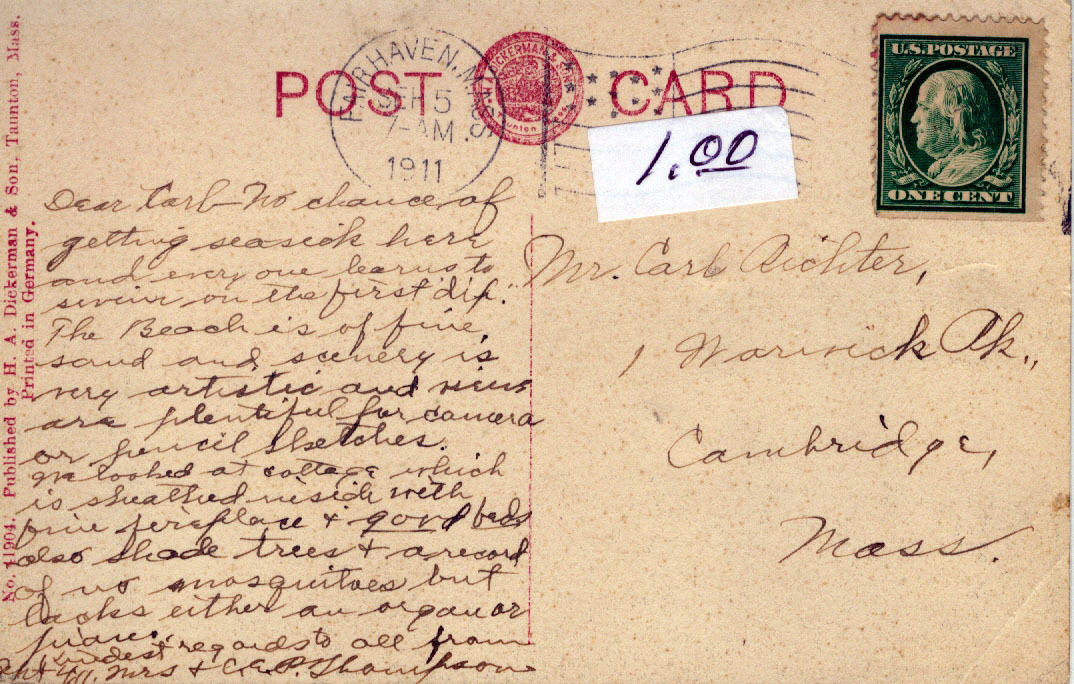 POST CARD
DICKERMAN & SON
Taunton
FAIRHAVEN, MASS.
SEP 5
7-AM
1911
U.S. POSTAGE
ONE CENT
1.00
Dear Carl - No chance of
getting seasick here
and every one learns to
swim on the first dip.
The Beach is of fine
sand and scenery is
very artistic and views
are plentiful for camera
or pencil sketches.
We looked at cottage which
is sheathed inside with
fine fireplace + good beds
also shade trees + a record
of no mosquitoes but
lacks either an organ or
piano.
Kindest regards to all from
Mrs + C.E.P. Thompson
Mr. Carl Richter,
1 Warwick Pk.,
Cambridge,
Mass.
No. 11904. Published by H. A. Dickerman & Son, Taunton, Mass.
Printed in Germany.